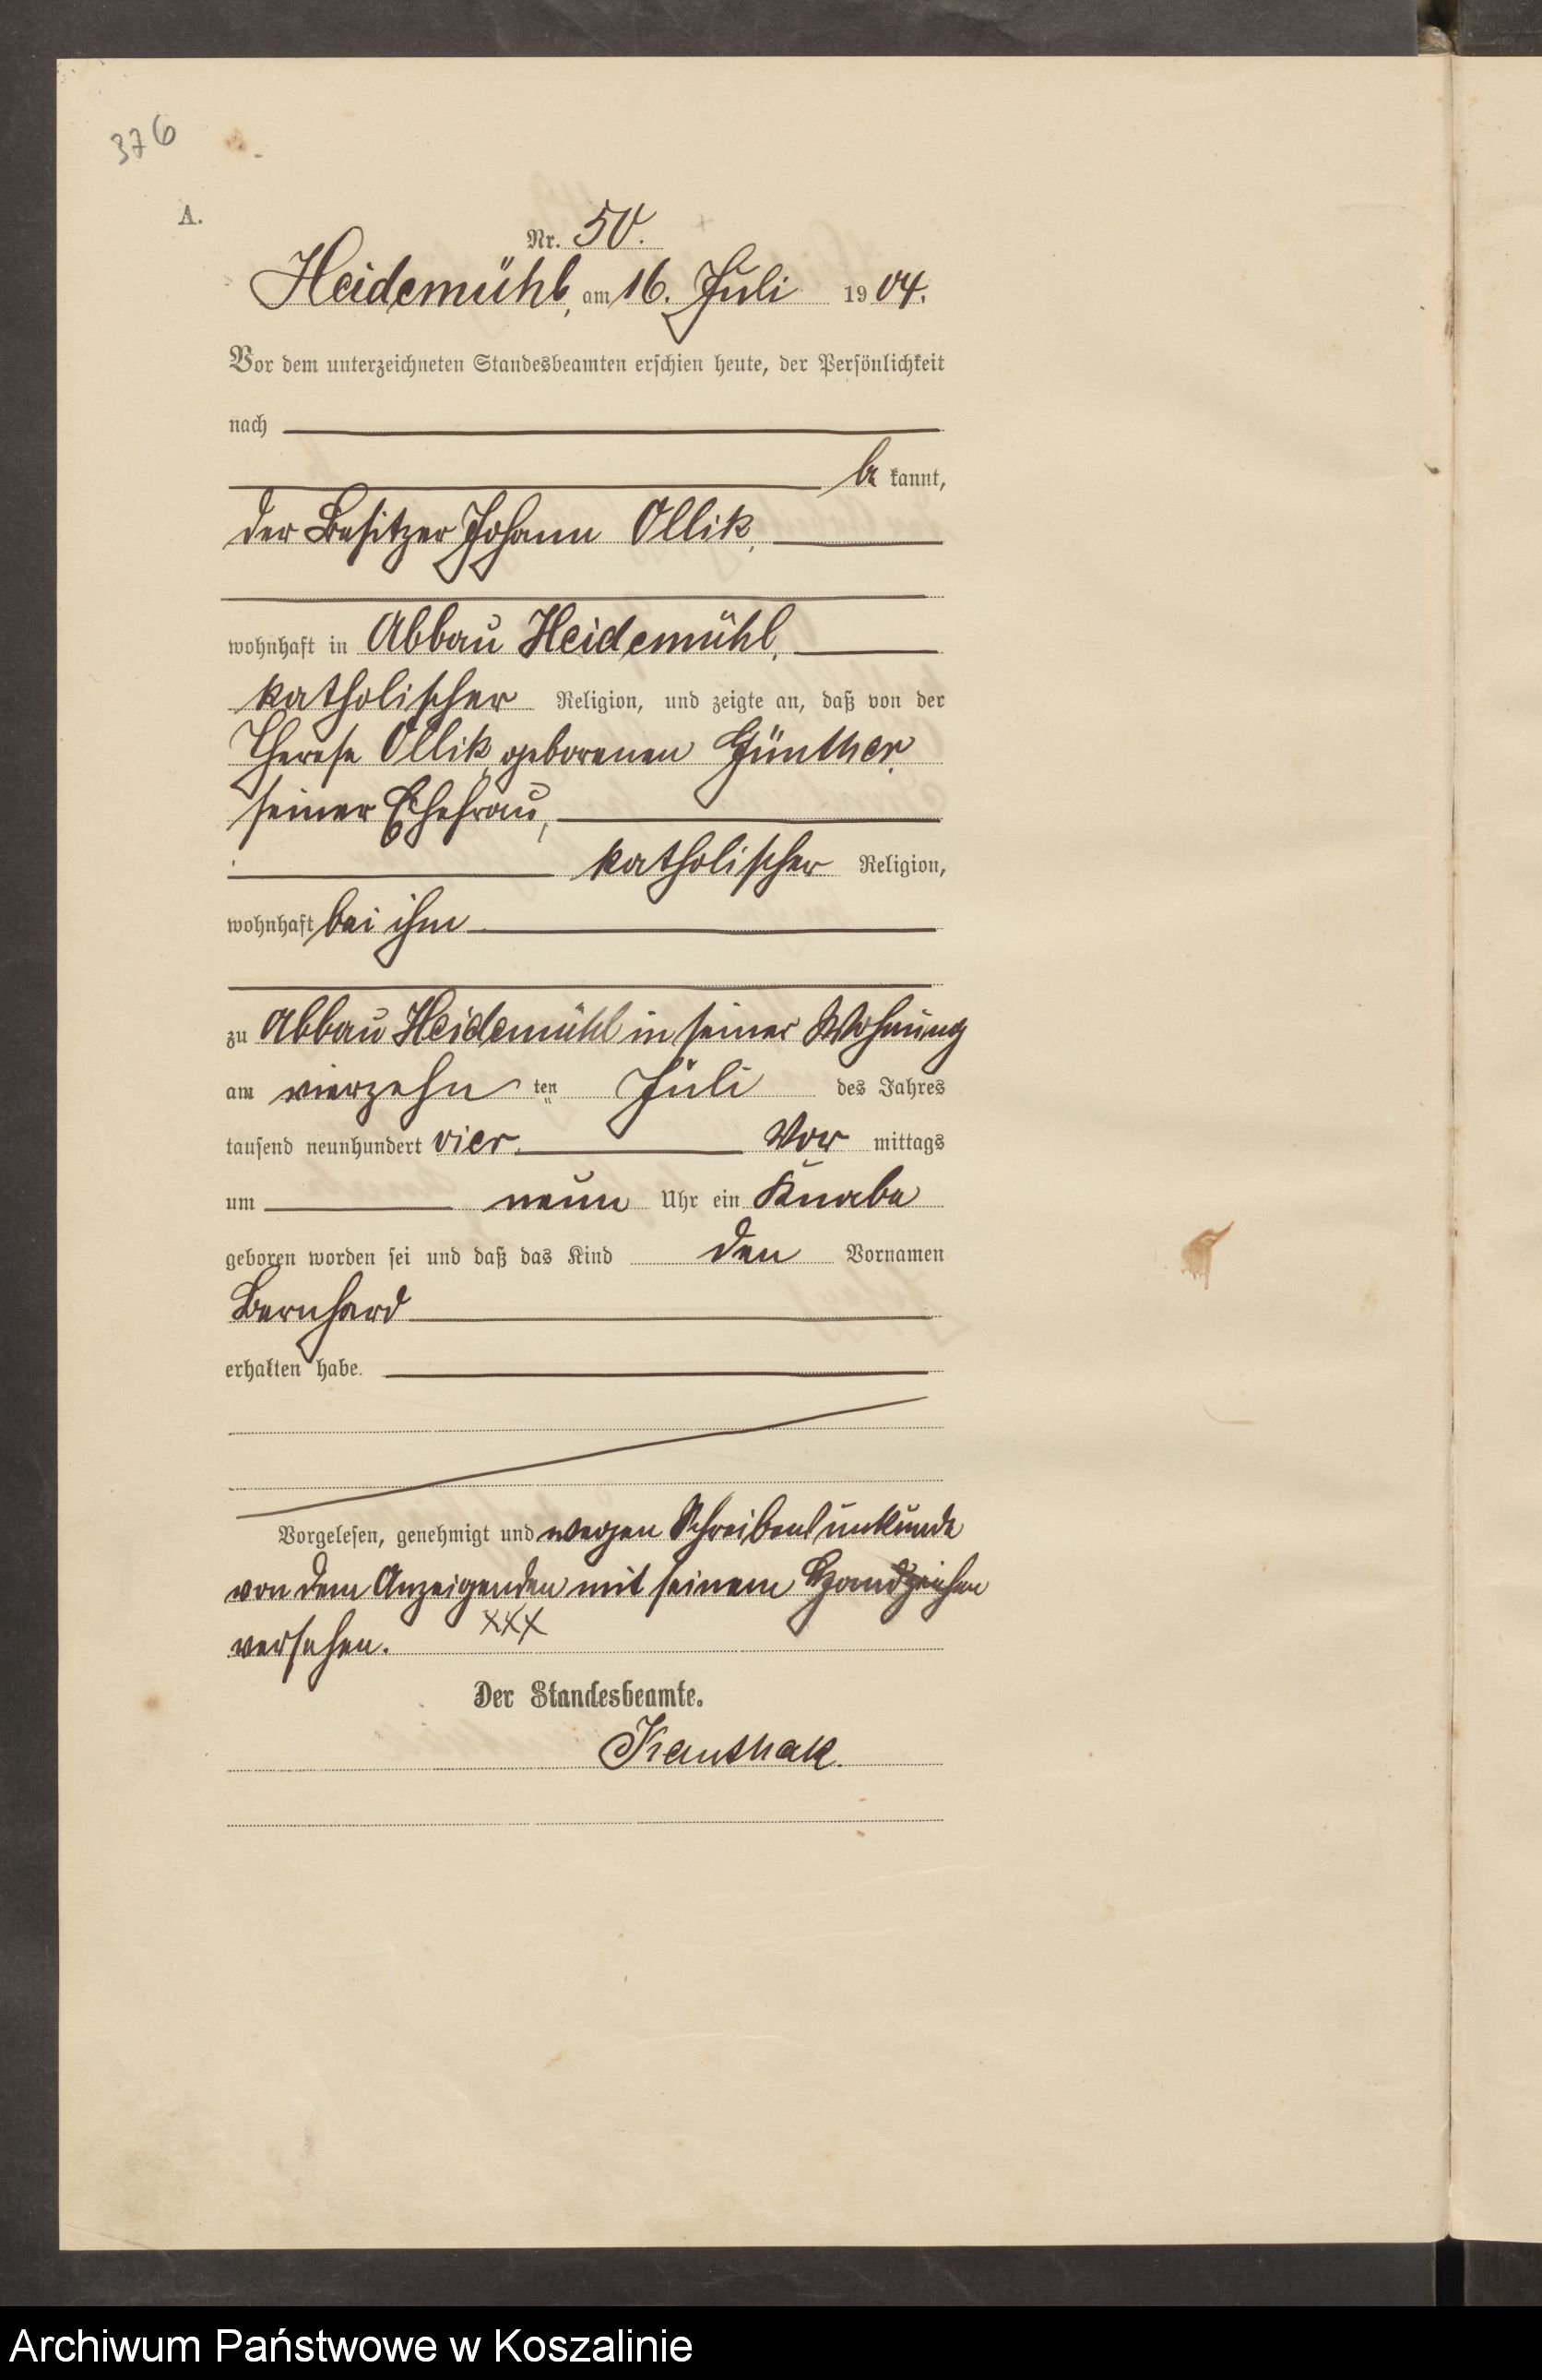 376
A.
Nr. 50.
Heidemühl, am 16. Juli 1904.
Vor dem unterzeichneten Standesbeamten erschien heute, der Persönlichkeit
nach
be kannt,
der Besitzer Johann Ollik,
wohnhaft in Abbau Heidemühl,
katholischer Religion, und zeigte an, daß von der
Therese Ollik, geborenen Günther,
seiner Ehefrau,
katholischer Religion,
wohnhaft bei ihm
zu Abbau Heidemühl in seiner Wohnung
am vierzehn ten Juli des Jahres
tausend neunhundert vier. Vor mittags
um neun Uhr ein Knabe
geboren worden sei und daß das Kind den Vornamen
Bernhard
erhalten habe.
Vorgelesen, genehmigt und wegen Schreibensunkunde
von dem Anzeigenden mit seinem Handzeichen
versehen. XXX
Der Standesbeamte.
Archiwum Państwowe w Koszalinie